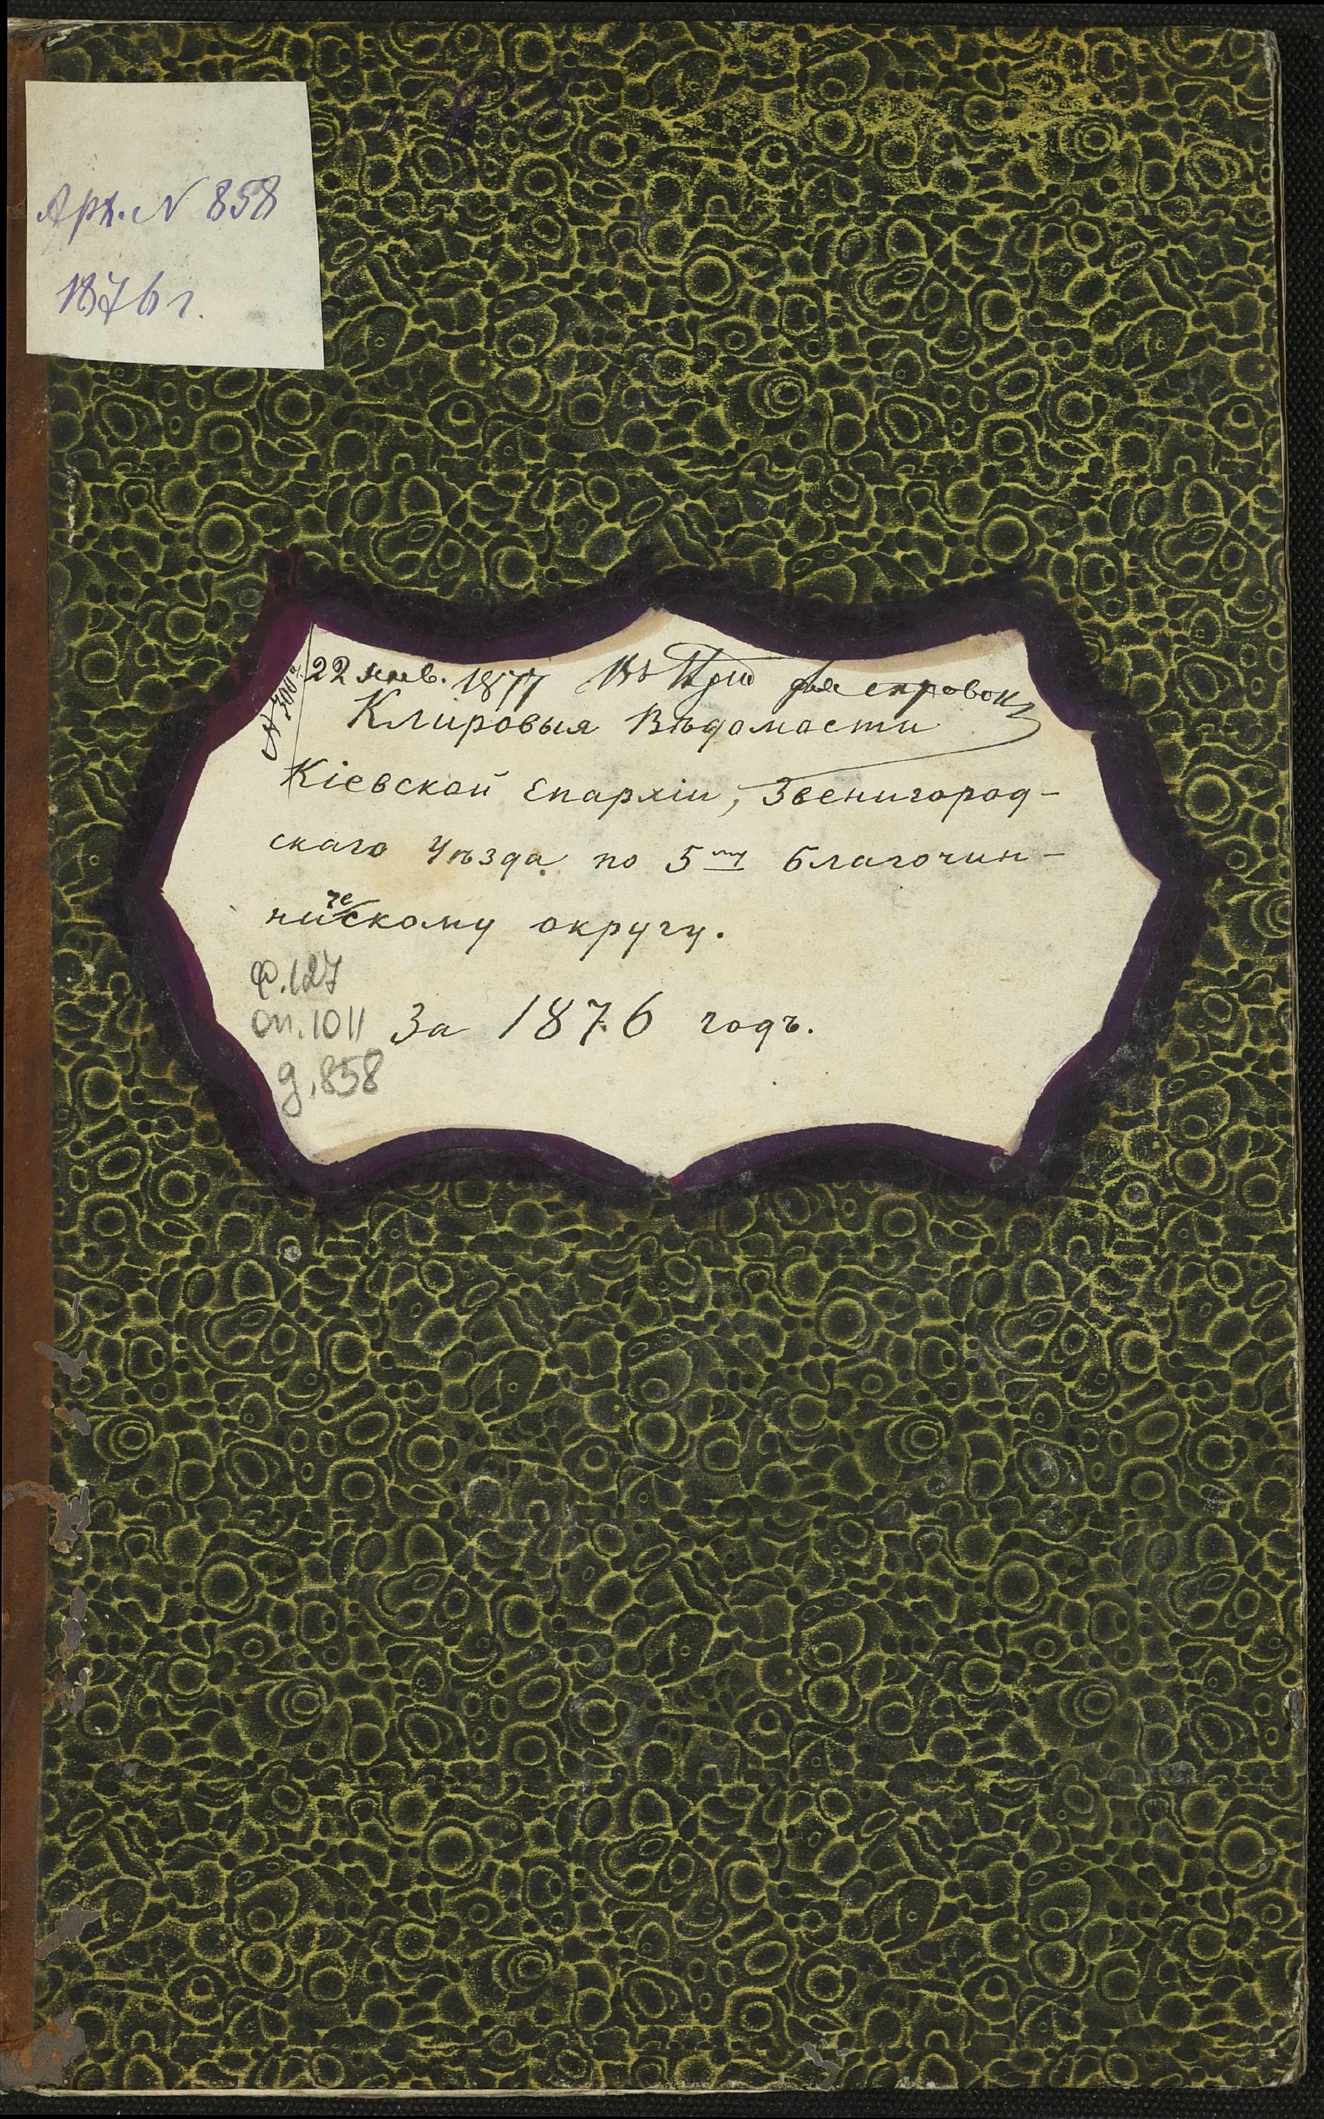 Арх. N 858
1876 г.
22 янв. 1877 Въ для справок
Клировыя Вѣдомости
Кіевской Епархіи, Звенигород-
скаго Уѣзда по 5му благочин-
ническому округу.
ф. 127
оп. 1011
За 1876 годъ.
д. 858